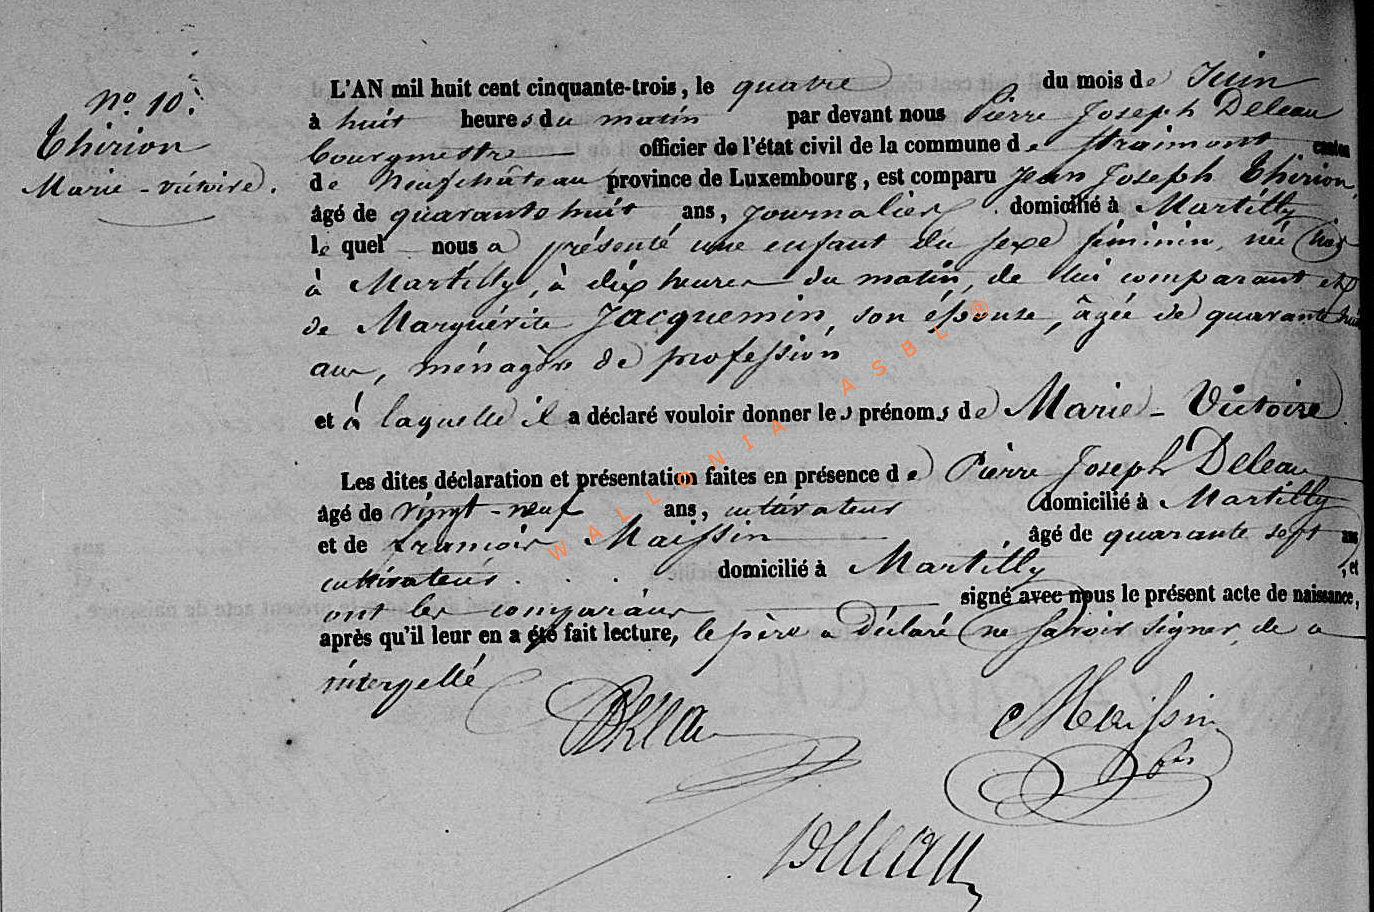 n° 10.
Thirion
Marie-victoire.
L'AN mil huit cent cinquante-trois, le quatre du mois de Juin
à huit heures du matin par devant nous Pierre Joseph Deleau
bourgmestre officier de l'état civil de la commune de Straimont canton
de Neufchâteau province de Luxembourg, est comparu Jean Joseph Thirion,
âgé de quarante huit ans, journalier domicilié à Martilly
le quel nous a présenté une enfant du sexe féminin, née hier
à Martilly, à dix heures du matin, de lui comparant et
de Marguérite Jacquemin, son épouse, âgée de quarante huit
ans, ménagère de profession
et à laquelle il a déclaré vouloir donner les prénoms de Marie-Victoire
Les dites déclaration et présentation faites en présence de Pierre Joseph Deleau
âgé de vingt-neuf ans, cultivateur domicilié à Martilly
et de françois Maissin âgé de quarante sept ans
cultivateur . . . domicilié à Martilly , et
ont les comparans signé avec nous le présent acte de naissance,
après qu'il leur en a été fait lecture, le père a déclaré ne savoir signer, de ce
interpellé
Maissin
Deleau
WALLONIA ASBL ®